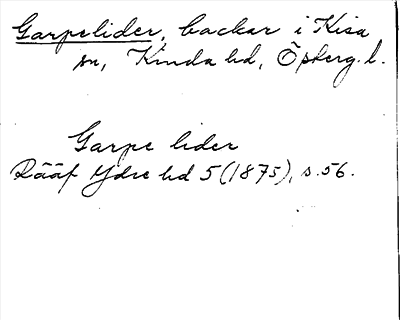 Garpelider, backar i Kisa
sn, Kinda hd, Österg. l.
Garpe lider
Rääf Ydre hd 5 (1875), s. 56.